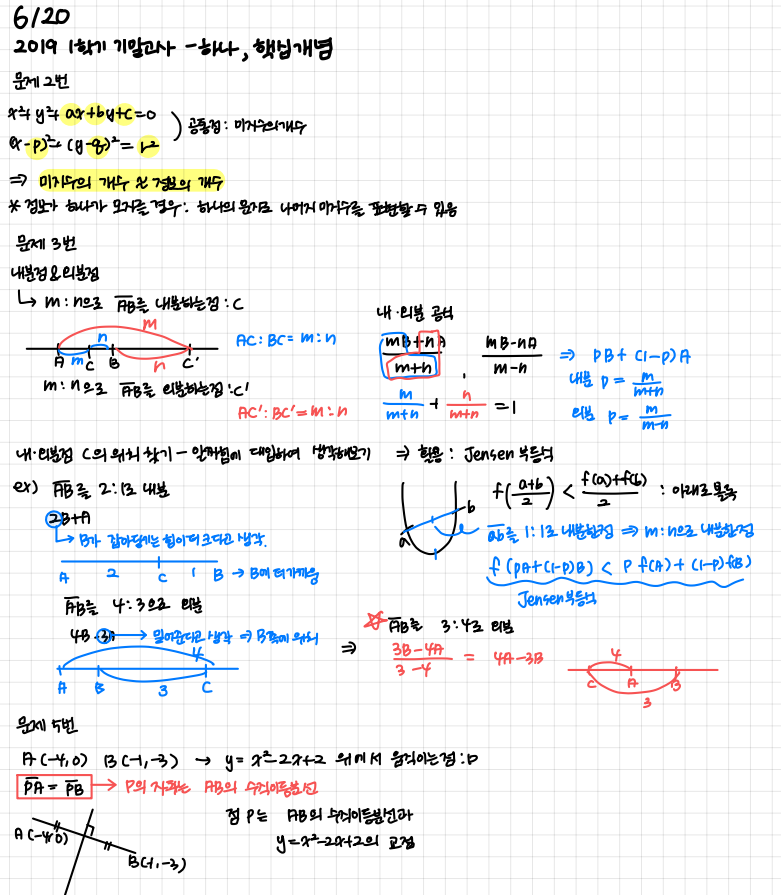 6/20
2019 1학기 기말고사 - 하나, 핵심개념
문제 2번
x²+y²+ax+by+c=0
(x-p)²+(y-q)²=r²
공통점: 미지수의개수
⇒ 미지수의 개수 ≠ 정보의 개수
* 정보가 하나가 모자를 경우: 하나의 문자로 나머지 미지수를 표현할 수 있음
문제 3번
내분점 & 외분점
↳ m:n으로 A̅B̅를 내분하는점: C
m
n
A m C B n C'
m:n으로 A̅B̅를 외분하는점: C'
AC:BC=m:n
AC':BC'=m:n
내·외분 공식
(mB+nA)/(m+n) , (mB-nA)/(m-n) ⇒ pB+(1-p)A
m/(m+n) + n/(m+n) = 1
내분 p = m/(m+n)
외분 p = m/(m-n)
내·외분점 C의 위치 찾기 - 대입하여 생각해보기 ⇒ 활용: Jensen 부등식
ex) A̅B̅를 2:1로 내분
2B+A
↳ B가 잡아당기는 힘이 더 크다고 생각.
A 2 C 1 B → B에 더가까움
f((a+b)/2) < (f(a)+f(b))/2 : 아래로볼록
a b
a̅b̅를 1:1로 내분한점 ⇒ m:n으로 내분한점
f(pA+(1-p)B) < p f(A)+(1-p)f(B)
Jensen부등식
A̅B̅를 4:3으로 외분
4B-3A → 밀어준다고 생각 ⇒ B쪽에 위치
4
A B 3 C
⇒ ☆ A̅B̅를 3:4로 외분
(3B-4A)/(3-4) = 4A-3B
4
C A B
3
문제 5번
A(-4,0) B(-1,-3) → y=x²-2x+2 위에서 움직이는점: P
P̅A̅ = P̅B̅ → P의 자취는 AB의 수직이등분선
점 P는 AB의 수직이등분선과
y=x²-2x+2의 교점
A(-4,0)
B(-1,-3)